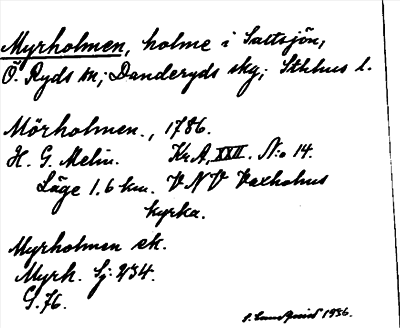 Myrholmen, holme i Saltsjön,
Ö. Ryds sn; Danderyds skg; Sthlms l.
Mörholmen., 1786.
H. G. Melin. Kr.A. XXII. N:o 14.
Läge 1.6 km. V N V Vaxholms
kyrka.
Myrholmen ek.
Myrh. Sj: 234.
G. 76.
S. Lundqvist 1936.